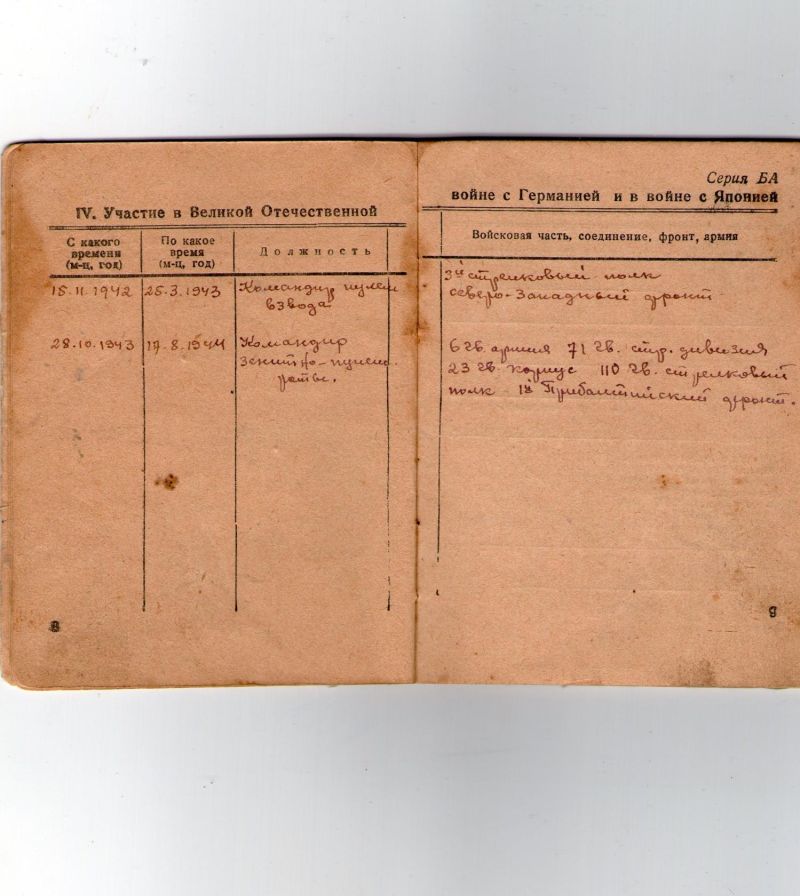 IV. Участие в Великой Отечественной
С какого времени (м-ц, год)
По какое время (м-ц, год)
Должность
15.11.1942 25.3.1943 Командир пулем
взвода
28.10.1943 17.8.1944 Командир
зенитно-пулем.
роты.
8
Серия БА
войне с Германией и в войне с Японией
Войсковая часть, соединение, фронт, армия
3й стрелковый полк
северо-Западный фронт
6 гв. армия 71 гв. стр. дивизия
23 гв. корпус 110 гв. стрелковый
полк 1й Прибалтийский фронт.
9